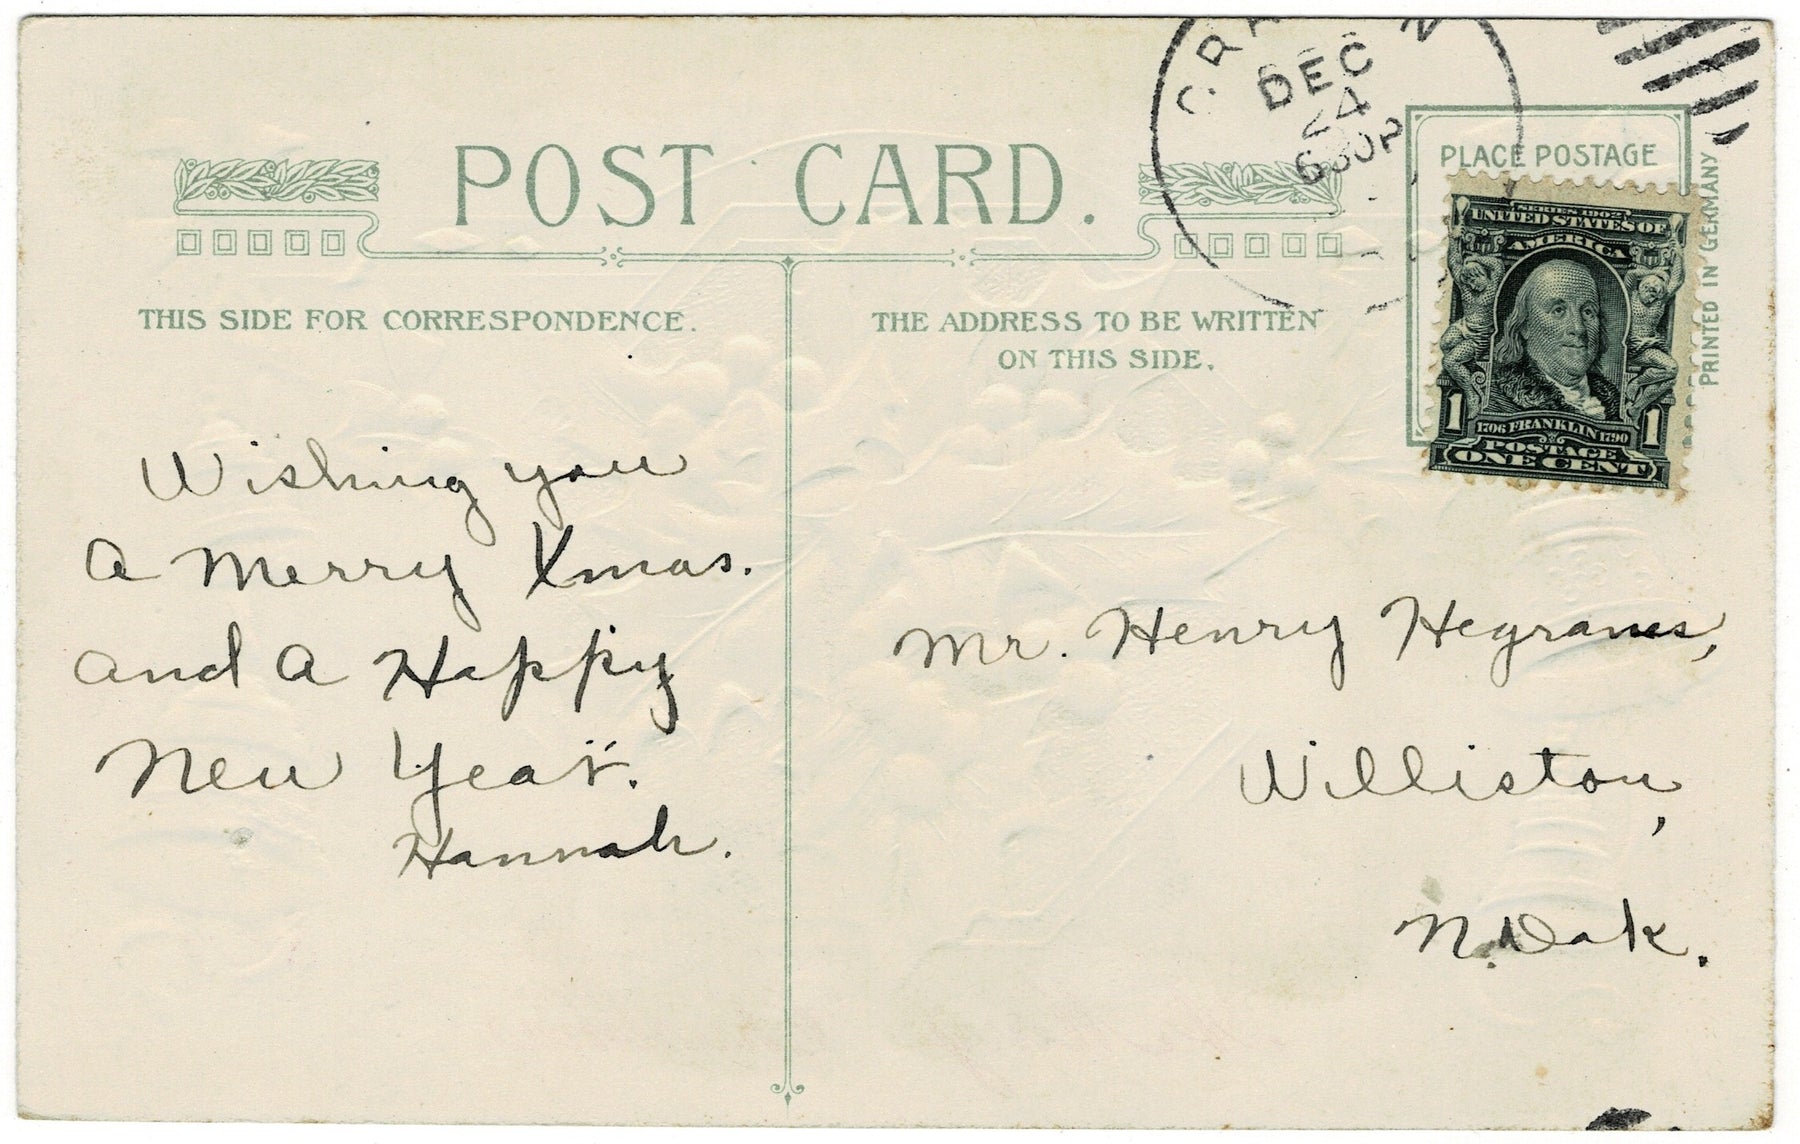 POST CARD.
THIS SIDE FOR CORRESPONDENCE.
Wishing you
a Merry Xmas.
and a Happy
New Year.
Hannah.
THE ADDRESS TO BE WRITTEN
ON THIS SIDE.
Mr. Henry Hegranes,
Williston,
N. Dak.
DEC
24
630P
PLACE POSTAGE
PRINTED IN GERMANY
SERIES 1902
UNITED STATES OF
AMERICA
1 1
1706 FRANKLIN 1790
POSTAGE
ONE CENT